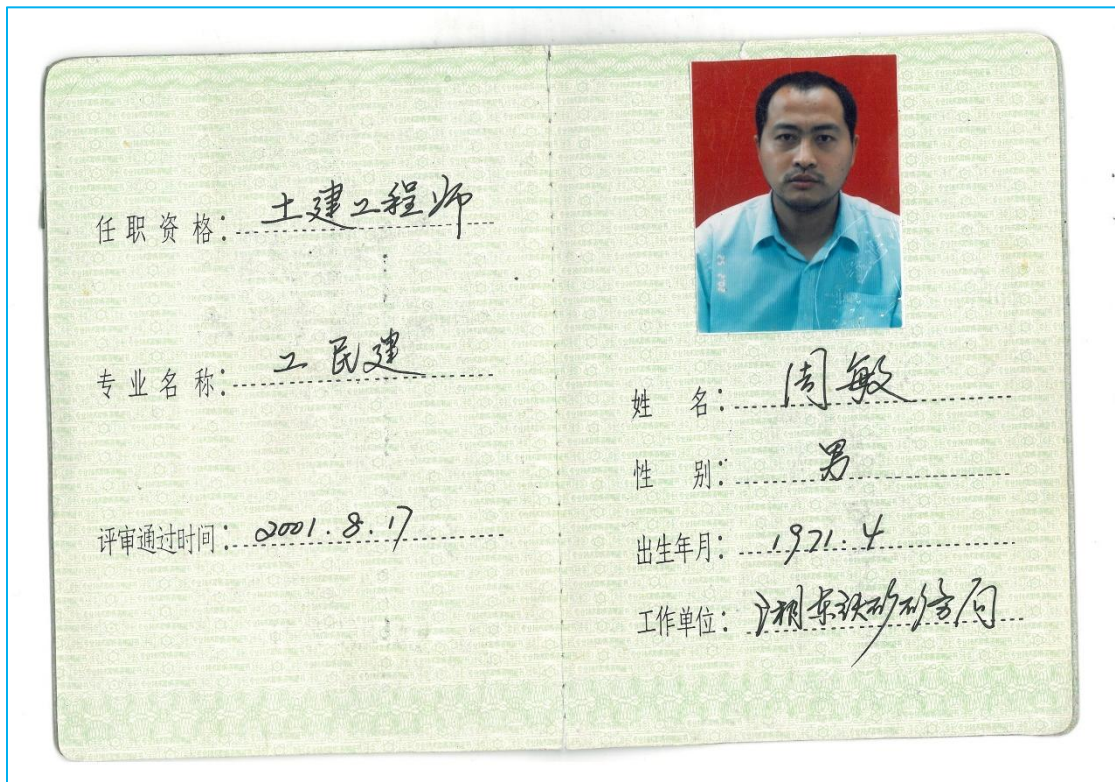 任职资格：土建工程师
专业名称：工民建
评审通过时间：2001.8.17
姓 名：周敏
性 别：男
出生年月：1971.4
工作单位：湘东铁矿矿务局